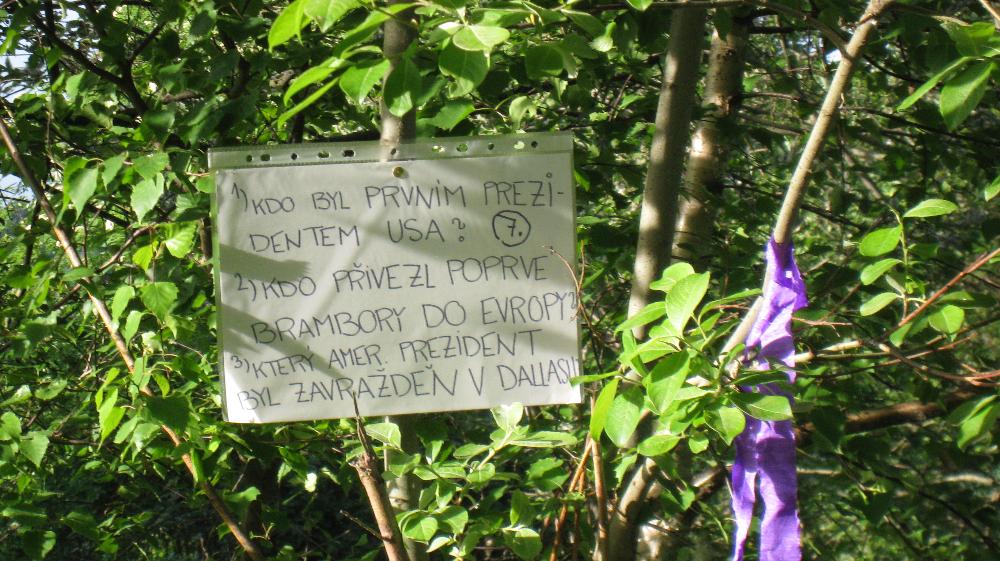 1) KDO BYL PRVNÍM PREZI-
DENTEM USA? 7.
2) KDO PŘIVEZL POPRVÉ
BRAMBORY DO EVROPY?
3) KTERÝ AMER. PREZIDENT
BYL ZAVRAŽDĚN V DALLASU